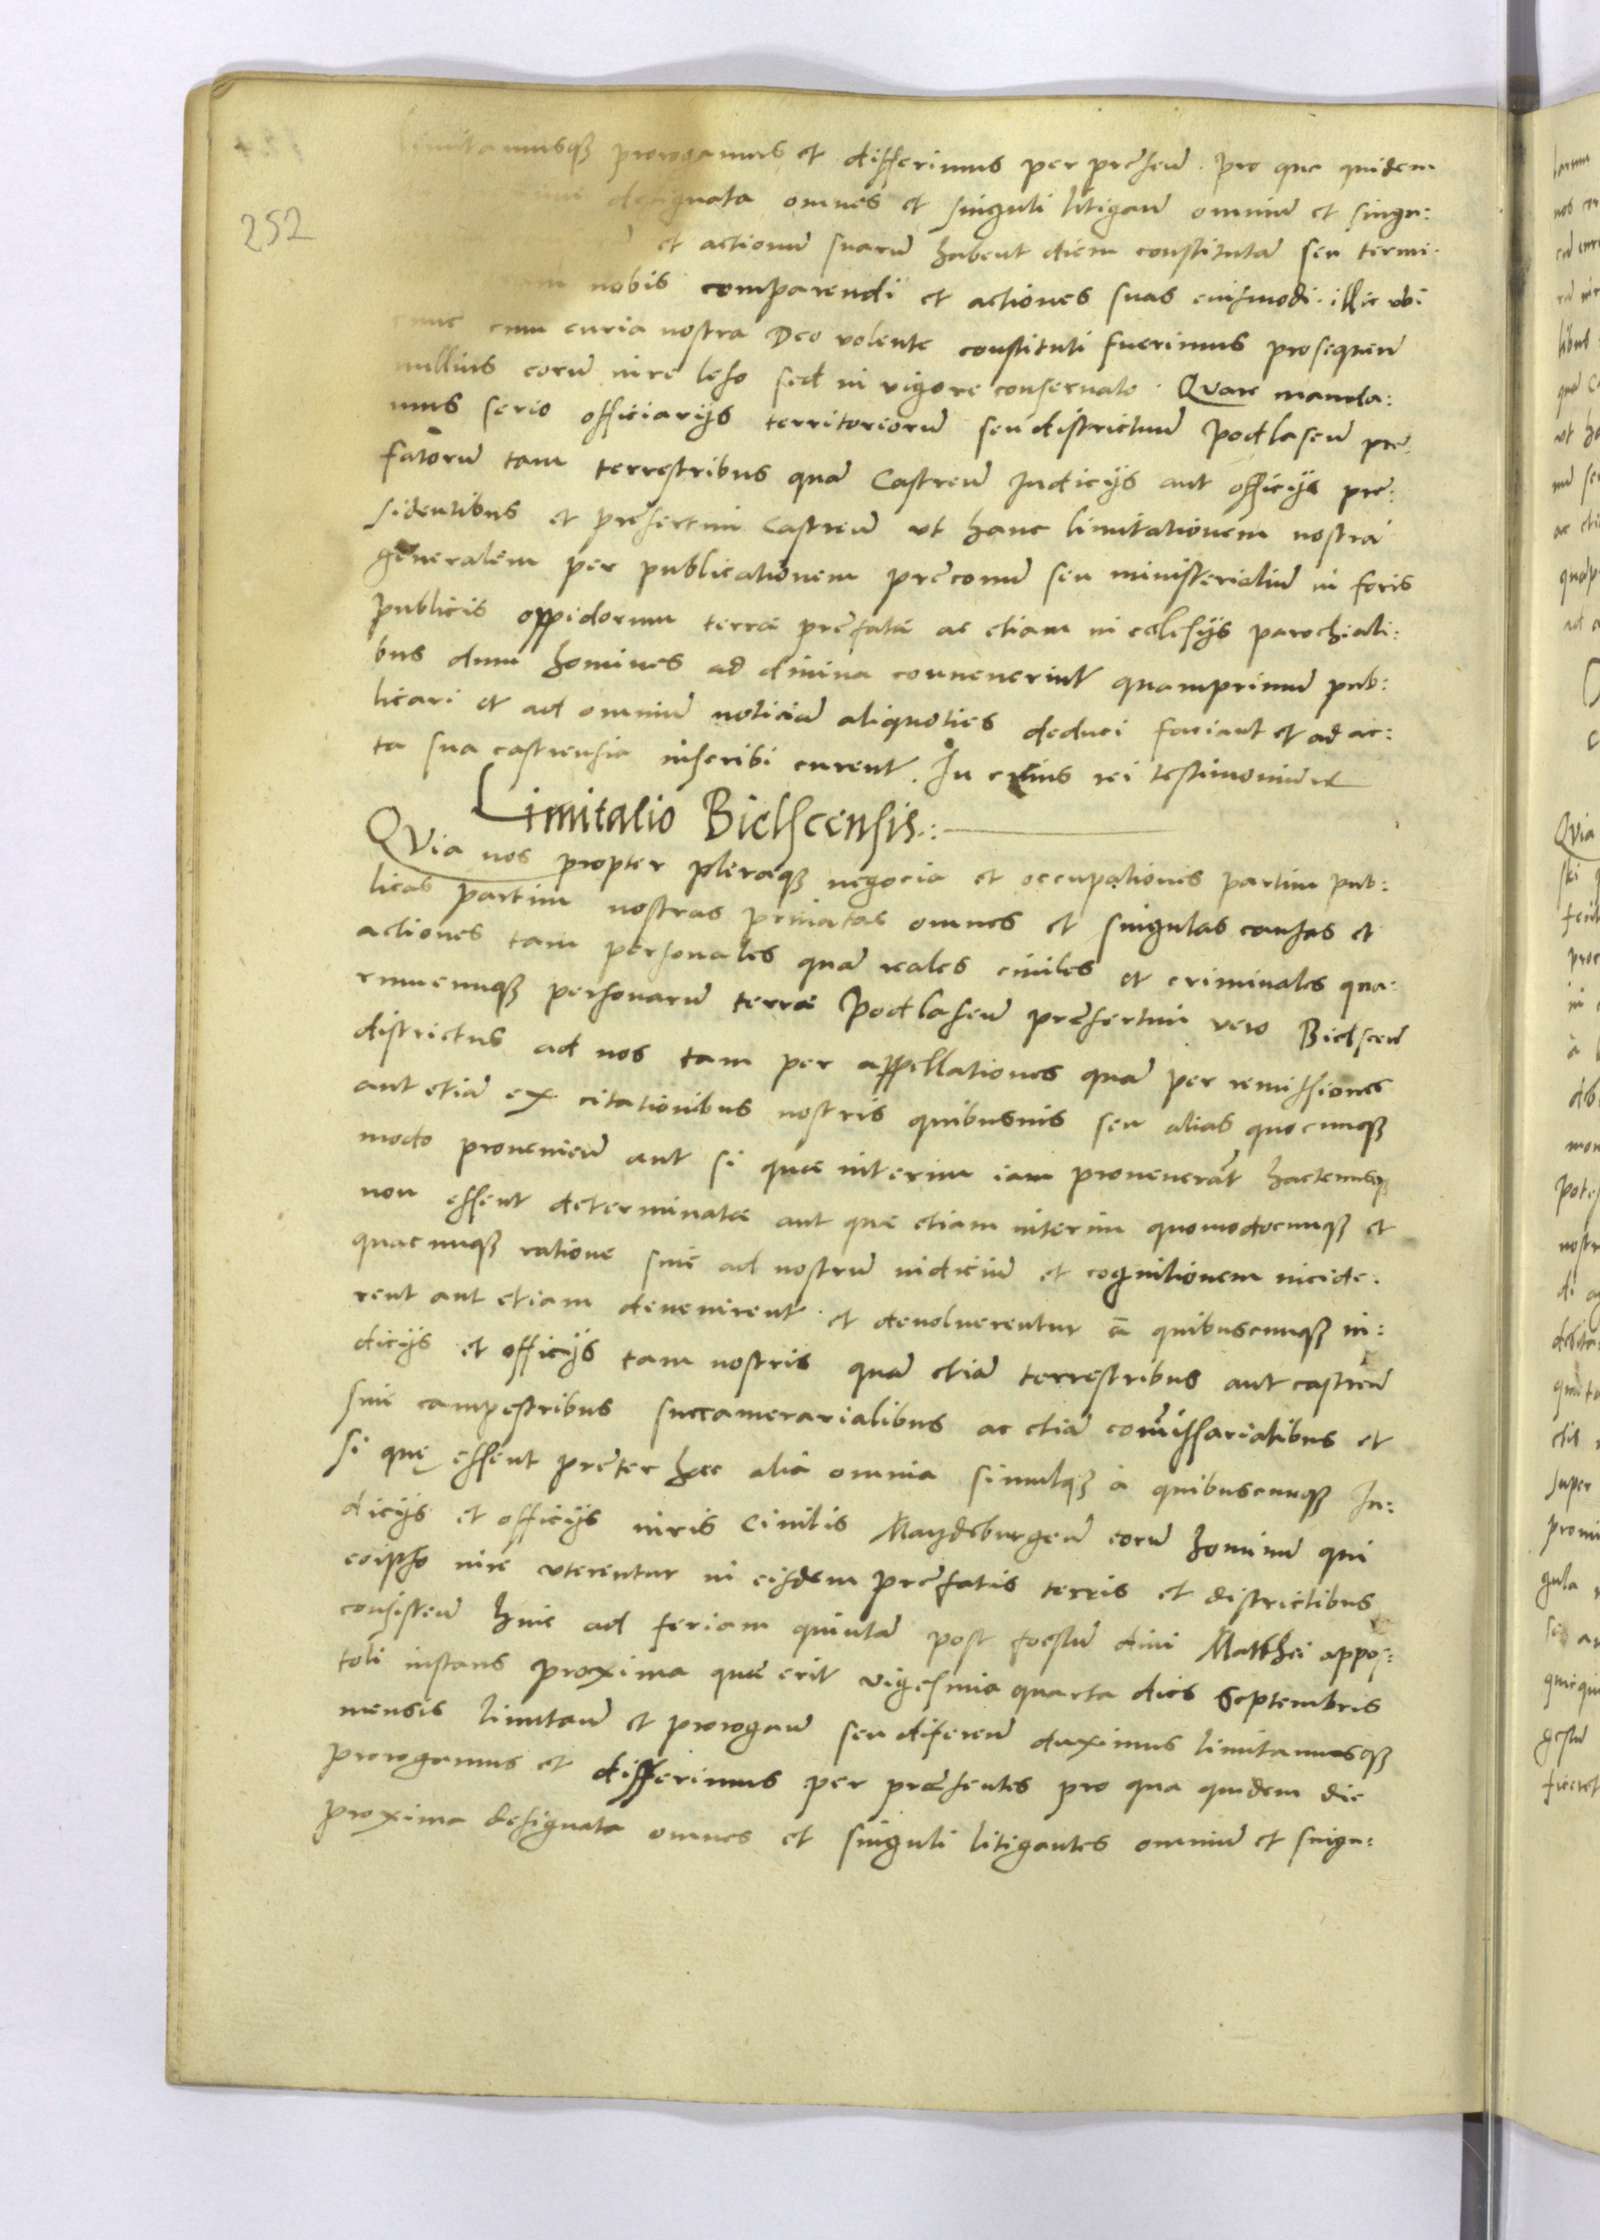 252
limitamusqȝ prorogamus et differimus per presen̄. pro qua quidem
designata omnes et singuli litigan̄ omniū et singu:
et actionū suarū habent diem constitutā seu termi:
nobis comparendi et actiones suas euismodi illic vbi
tunc cum curia nostra Deo volente constituti fuerimus prosequen̄
nullius eorū iure leso sed in vigore conseruato. Quare manda:
mus serio officiarijs territoriorū seu districtuū podlasen̄ pre:
fatorū tam terrestribus quā Castren̄ Iudicijs aut officijs pre:
sidentibus et presertim Castren̄ vt hanc limitationem nostrā
generalem per publicationem preconū seu ministerialiū in foris
publicis oppidorum terræ prefatæ ac etiam in eclesijs parochiali:
bus dum homines ad diuina conuenerint quamprimū pub:
licari et ad omniū noticiā aliquoties deduci faciant et ad ac:
ta sua castrensia inscribi curent. In cuius rei testimoniū etc
Limitatio Bielscensis.:
QVia nos propter pleraqȝ negocia et occupationes partim pub:
licas partim nostras priuatas omnes et singulas causas et
actiones tam personales quā reales ciuiles et criminales qua:
rumcunqȝ personarū terræ Podlasen̄ presertim vero Bielscen̄
districtus ad nos tam per appellationes quā per remissiones
aut etiā ex citationibus nostris quibusuis seu alias quocunqȝ
modo prouenien̄ aut si quæ interim iam prouenerāt hactenusqȝ
non essent determinatæ aut quæ etiam interim quomodocunqȝ et
quacunqȝ ratione siue ad nostrū iudiciū et cognitionem incide:
rent aut etiam deuenirent et deuoluerentur à quibuscunqȝ iu:
dicijs et officijs tam nostris quā etiā terrestribus aut castren̄
siue campestribus succamerarialibus ac etiā com̄issarialibus et
si quę essent preter hæc alia omnia simulqȝ à quibuscunqȝ Iu:
dicijs et officijs iuris Ciuilis Maydeburgen̄ eorū hominū qui
eoipso iure vterentur in eisdem prefatis terris et districtibus
consisten̄ huic ad feriam quintā post foestū diui Matthei appos:
toli instans proxima quæ erit vigesima quarta dies Septembris
mensis limitan̄ et prorogan̄ seu diferen̄ duximus limitamusqȝ
prorogamus et differimus per præsentes pro qua quidem die
proxima designata omnes et singuli litigantes omniū et singu: